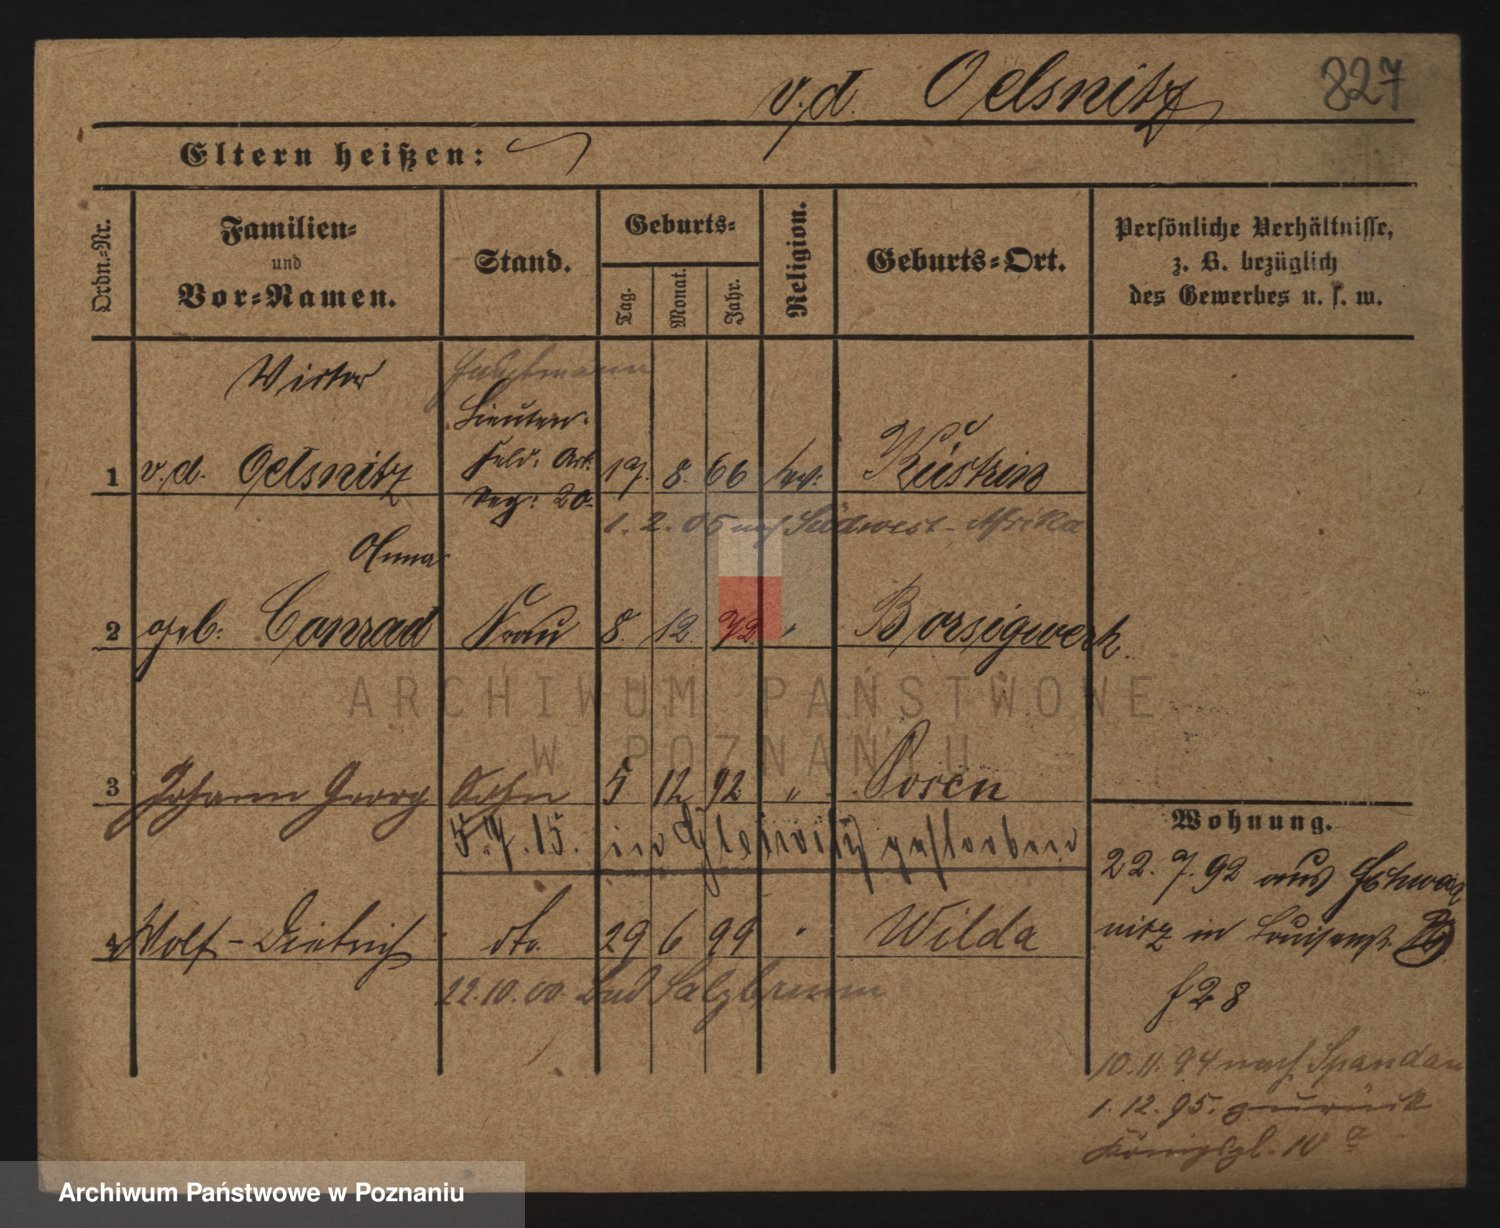 v. d. Oelsnitz 827
Eltern heißen:
Ordn.-Nr.
Familien-
und
Vor-Namen.
Stand.
Geburts-
Tag.
Monat.
Jahr.
Religion.
Geburts-Ort.
Persönliche Verhältnisse,
z. B. bezüglich
des Gewerbes u. s. w.
Victor Hauptmann
Lieuten.
1 v. d. Oelsnitz Feld. Art. 17. 8. 66 ev. Küstrin
Reg. 20.
1. 2. 05 nach Südwest-Afrika
Anna
2 geb. Conrad Frau 8. 12. 72. " Borsigwerk.
ARCHIWUM PAŃSTWOWE
W POZNANIU
3 Johann Georg Sohn 5 12 92 " Posen
5. 7. 15. in Gleiwitz gestorben
4 Wolf-Dietrich dto. 29 6 99 " Wilda
22.10.00. Bad Salzbrunn
Wohnung.
22. 7. 92 aus Schwa
nitz in Louisenstr.
f 28
10. 11. 94 nach Spandau
1. 12. 95. zurück
Königspl. 10 a
Archiwum Państwowe w Poznaniu